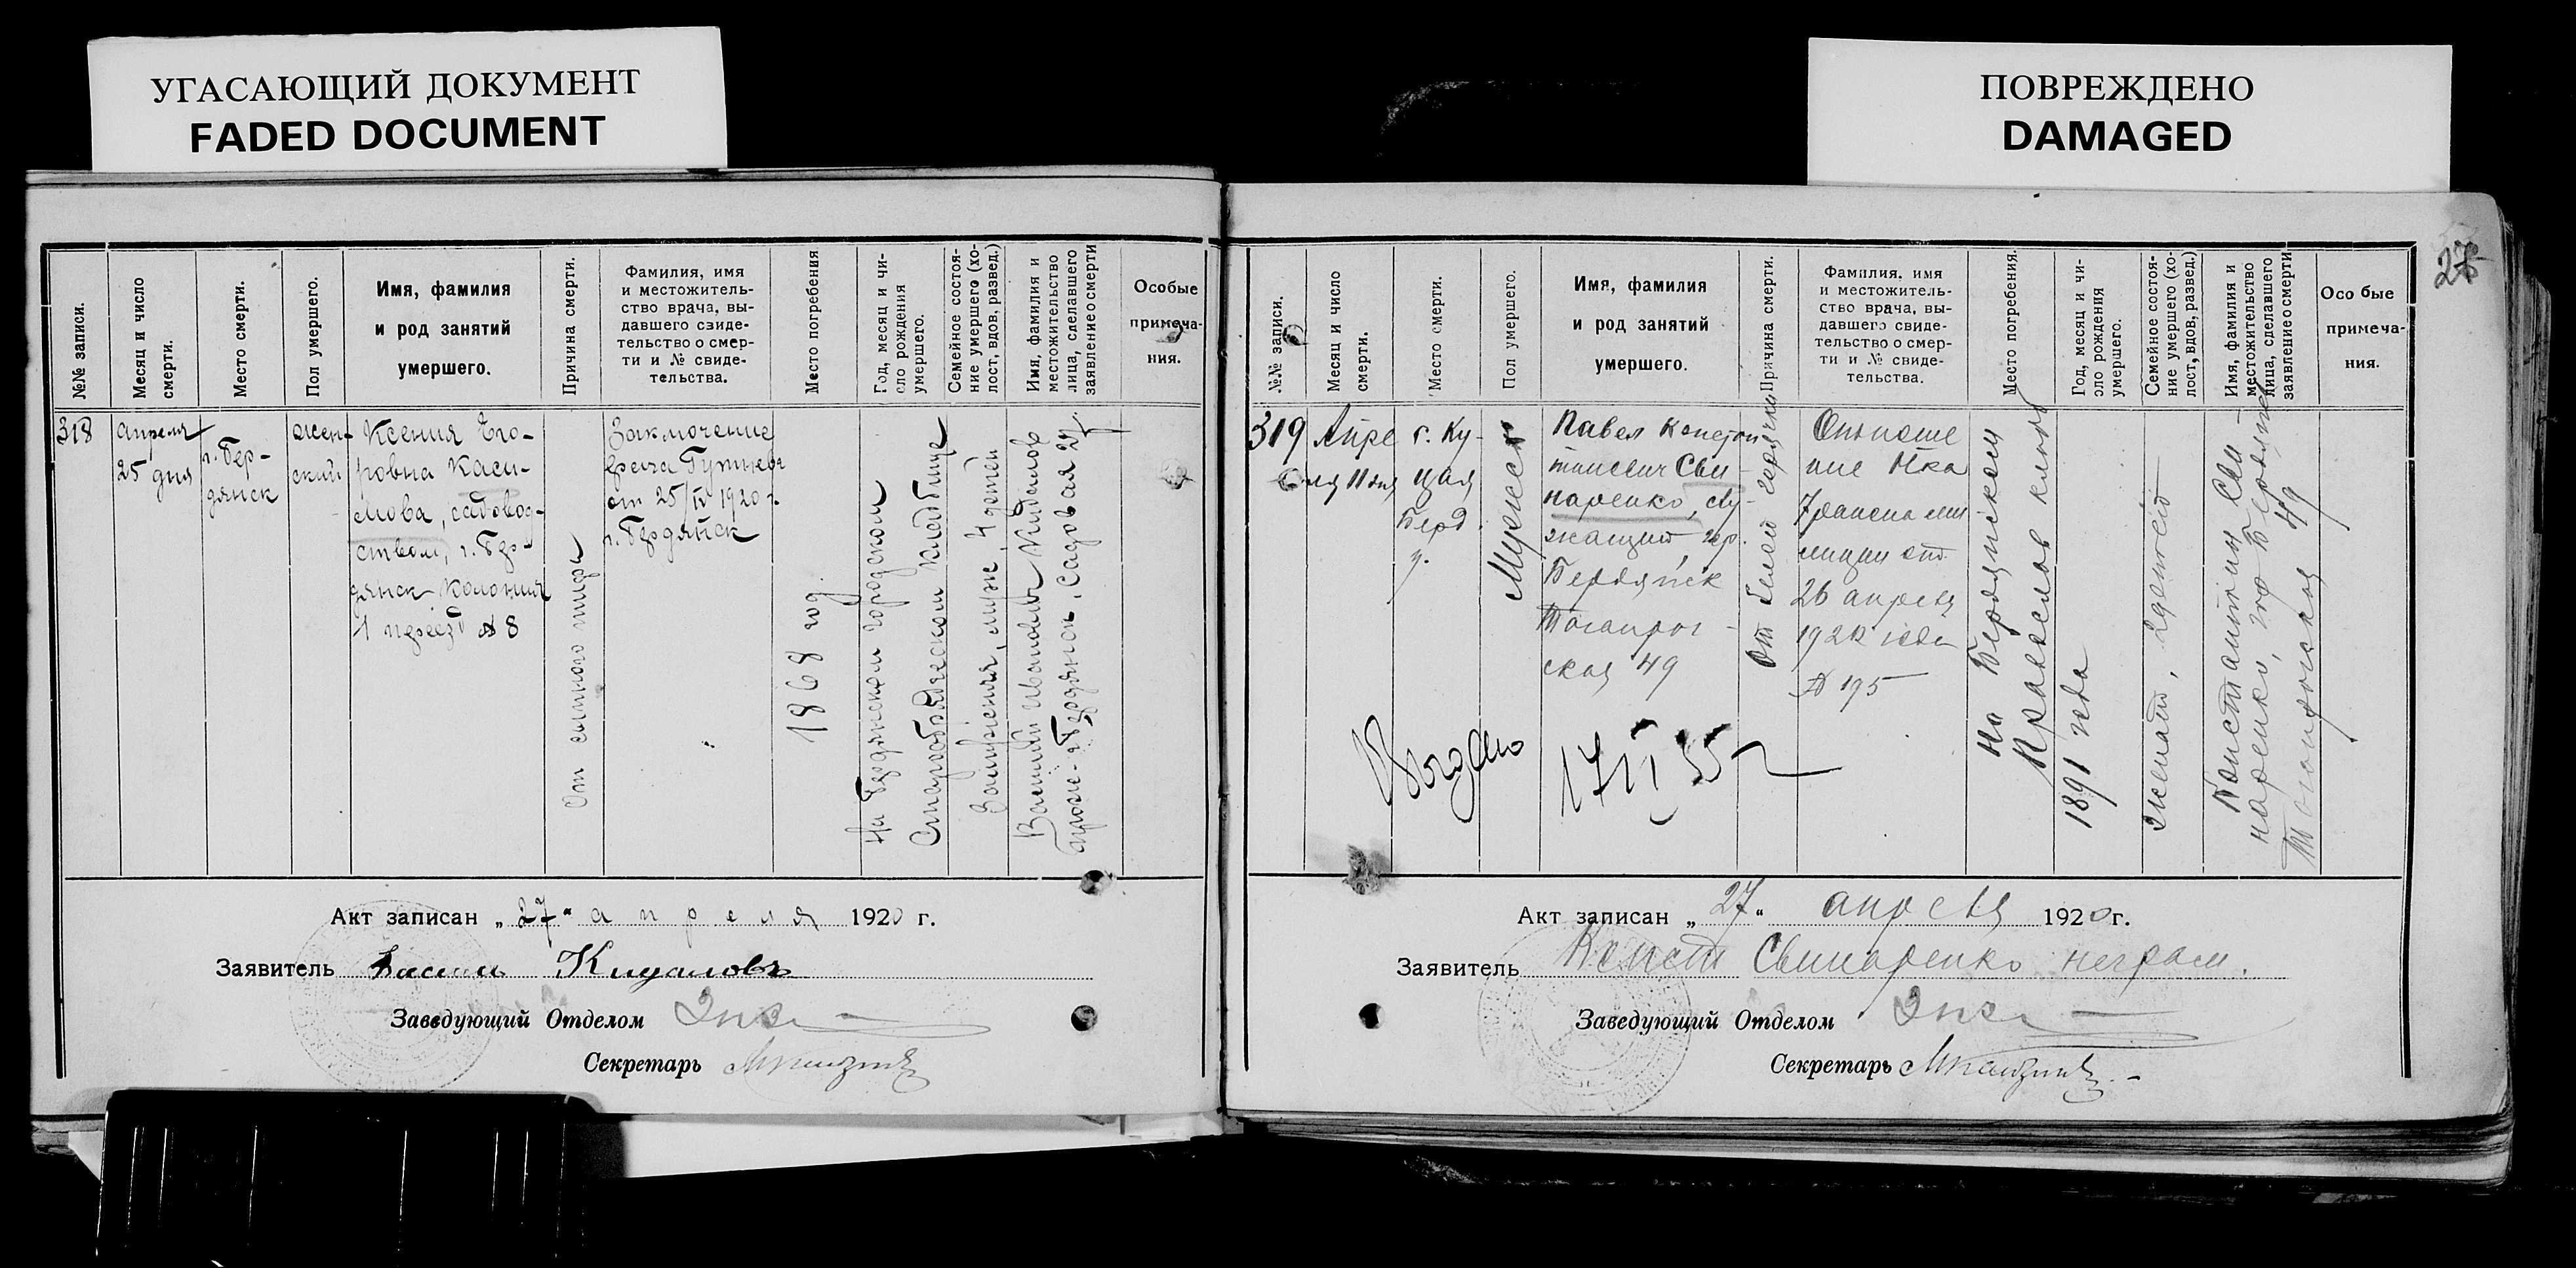 УГАСАЮЩИЙ ДОКУМЕНТ
FADED DOCUMENT
ПОВРЕЖДЕНО
DAMAGED
№№ записи.
Месяц и число
смерти.
Место смерти.
Пол умершего.
Имя, фамилия
и род занятий
умершего.
Причина смерти.
Фамилия, имя
и местожитель-
ство врача, вы-
давшего свиде-
тельство о смер-
ти и № свиде-
тельства.
Место погребения
Год, месяц и чи-
сло рождения
умершего.
Семейное состоя-
ние умершего (хо-
лост, вдов, развед.)
Имя, фамилия и
местожительство
лица, сделавшего
заявление о смерти
Особые
примеча-
ния.
318
апреля
25 дня
г. Бер-
дянск
жен-
ский
Ксения Его-
ровна Каси-
мова, садовод-
ством, г. Бер-
дянск колония
1 переезд № 8
От сыпного тифа
Заключение
врача
от 25/IV 1920 г.
г. Бердянск
1868 год
На Бердянском городском
Старообрядческом кладбище
Замужняя, муж, 4 детей
Василий Иванович Кидалов
Бердянск, Садовая 27
Акт записан „27" апреля 1920 г.
Заявитель Васили Кидаловъ
Заведующий Отделом
Секретарь
27
№№ записи.
Месяц и число
смерти.
Место смерти.
Пол умершего.
Имя, фамилия
и род занятий
умершего.
Причина смерти.
Фамилия, имя
и местожитель-
ство врача, вы-
давшего свиде-
тельство о смер-
ти и № свиде-
тельства.
Место погребения.
Год, месяц и чи-
сло рождения
умершего.
Семейное состоя-
ние умершего (хо-
лост, вдов, развед.)
Имя, фамилия и
местожительство
лица, сделавшего
заявление о смерти
Особые
примеча-
ния.
319
Апре
ля 11 дня
с. Ку-
цая
Берд.
у.
Мужской
Павел Констан
тинович Сви
наренко, слу-
жащий, гор.
Бердянск
Таганрог-
ская 49
От белой горячки
Отноше
ние
милиции от
26 апреля
1920 года
№ 195
На Бердянском
Православ кладб
1891 года
Женат, 2 детей
Константин Сви-
наренко, гор Бердянск
Таганрогская 49
Выдано
17 VI 55 г
Акт записан „27" апреля 1920 г.
Заявитель Конст Свинаренко неграм.
Заведующий Отделом
Секретарь